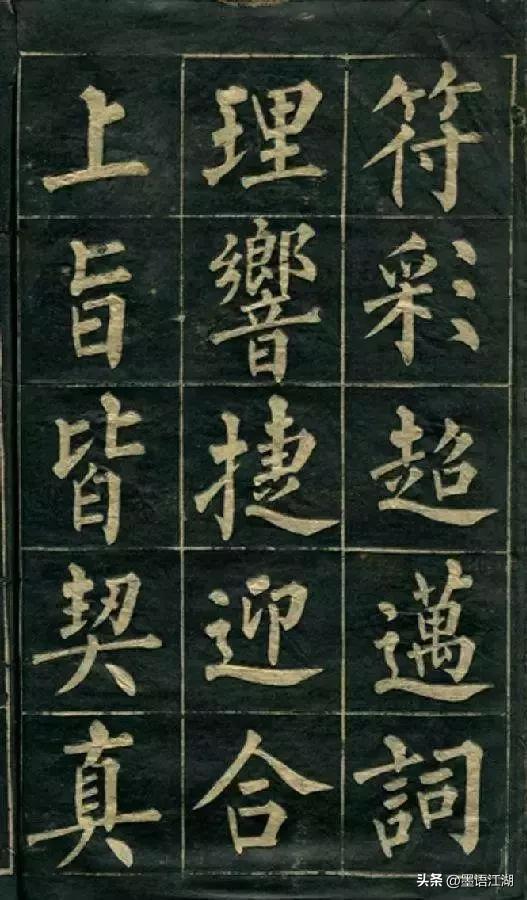 符彩超邁詞
理響捷迎合
上旨皆契真
头条 @墨语江湖